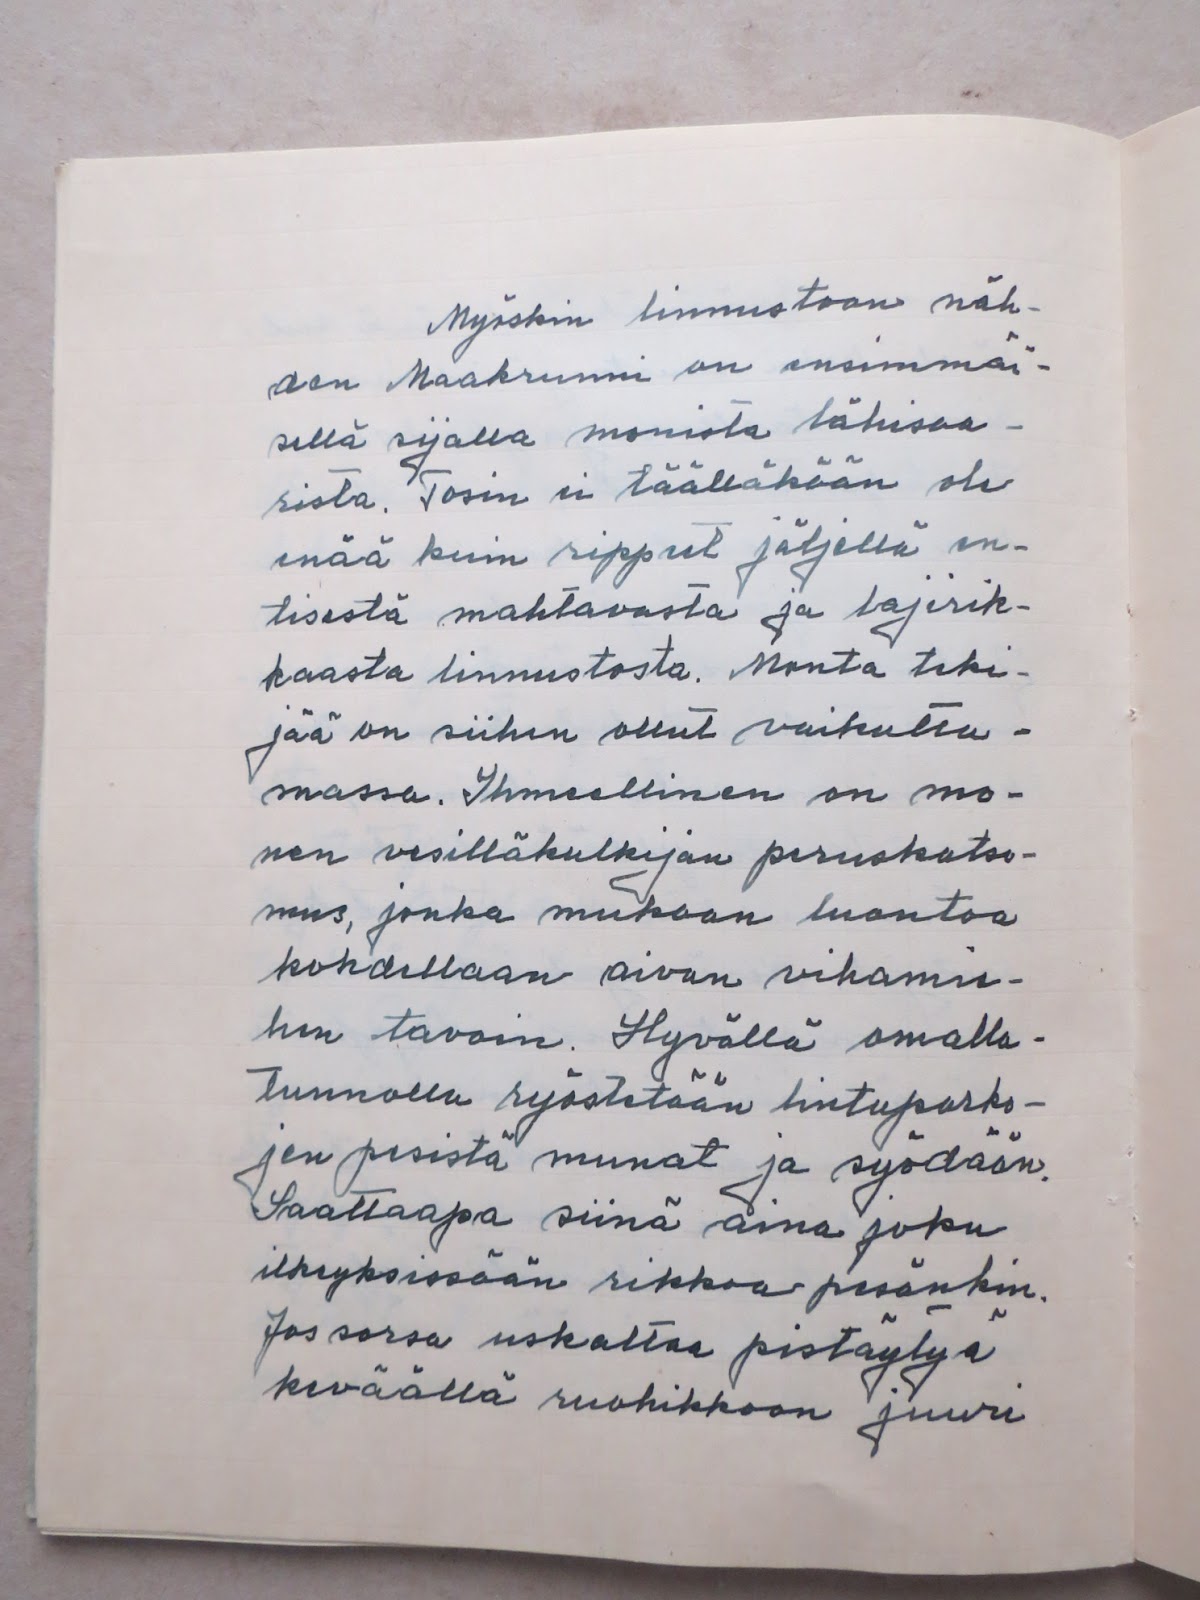 Myöskin linnustoon näh-
den Maakrunni on ensimmäi-
sellä sijalla monista lähisaa-
rista. Tosin ei täälläkään ole
enää kuin rippeet jäljellä en-
tisestä mahtavasta ja lajirik-
kaasta linnustosta. Monta teki-
jää on siihen ollut vaikutta-
massa. Ihmeellinen on mo-
nen vesilläkulkijan peruskatso-
mus, jonka mukaan luontoa
kohdellaan aivan vihamie-
hen tavoin. Hyvällä omalla-
tunnolla ryöstetään lintuparko-
jen pesistä munat ja syödään.
Saattaapa siinä aina joku
ilkeyksissään rikkoa pesänkin.
Jos sorsa uskaltaa pistäytyä
keväällä ruohikkoon juuri